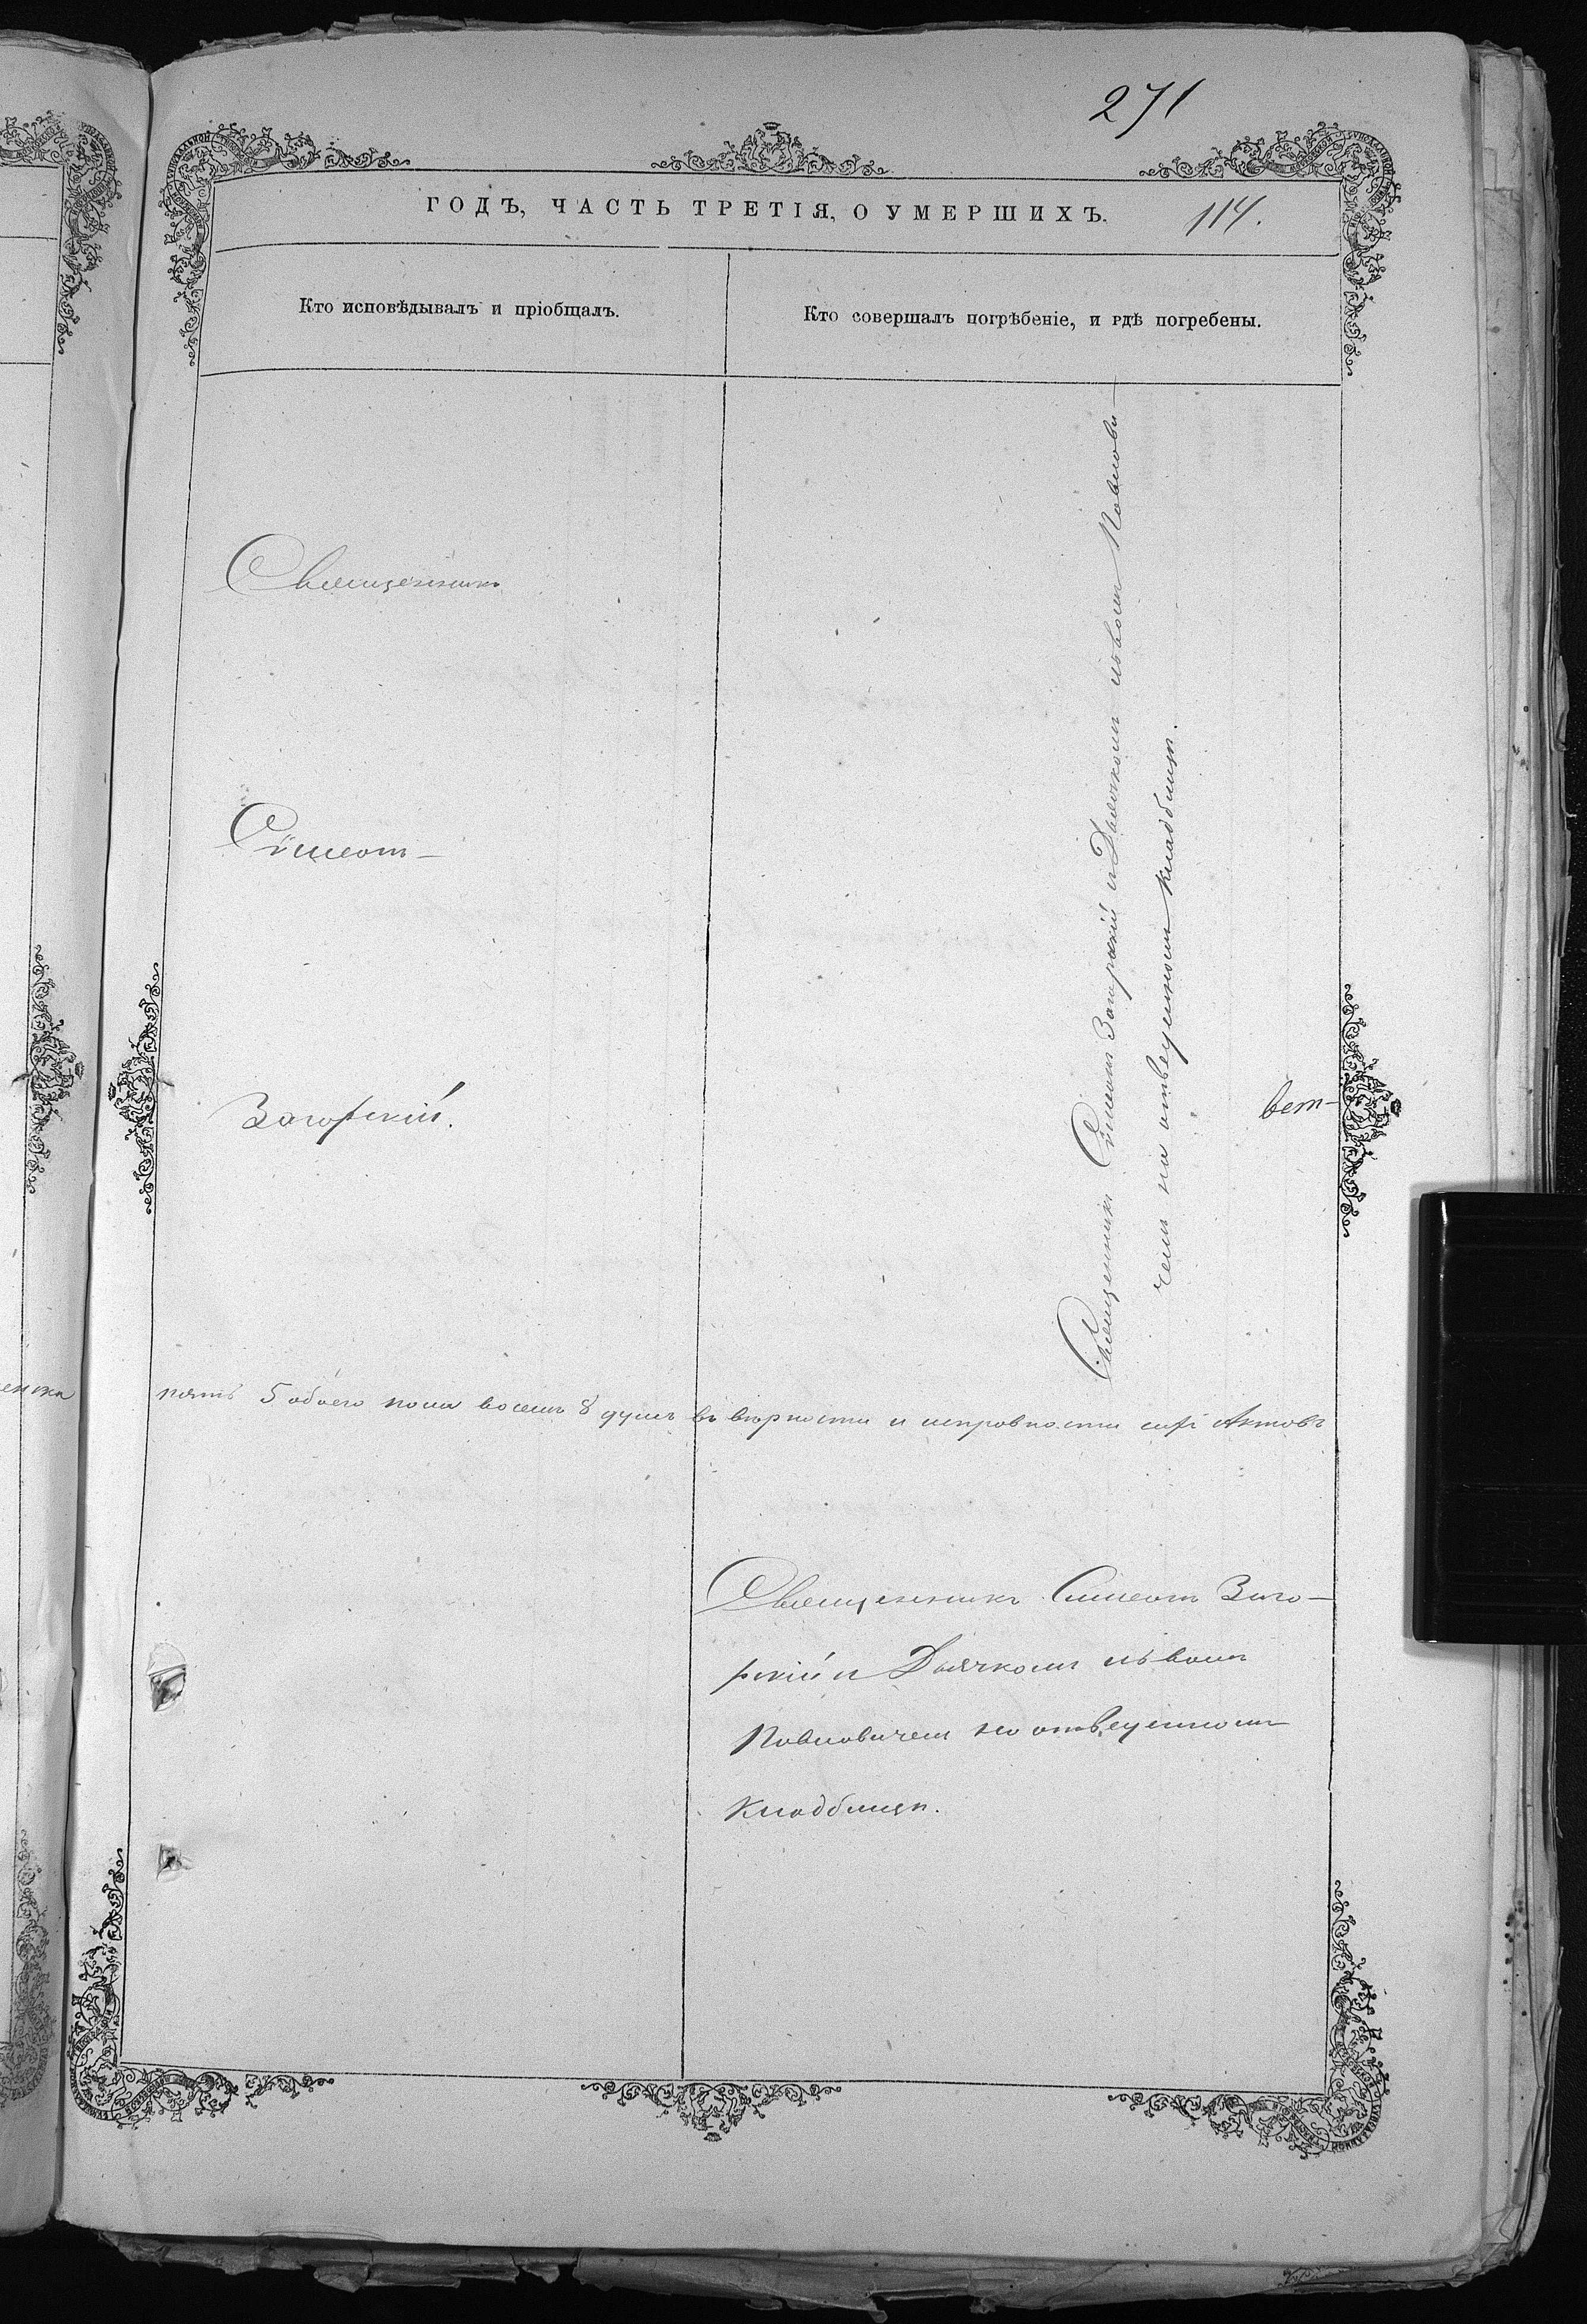 271
ГОДЪ, ЧАСТЬ ТРЕТІЯ, О УМЕРШИХЪ.
114.
Кто исповѣдывалъ и пріобщалъ.
Кто совершалъ погрѣбеніе, и гдѣ погребены.
Священникъ
Сѵмеон
Загорскій.
Священникъ Сѵмеон Загорскій и Дьячкомъ Павлови-
чем на отведенном кладбищѣ.
вет-
пять 5 обоего пола восемь 8 душъ въ вѣрности и исправности Актовъ
Священникъ Симеонъ Заго-
рскій и Дьячкомъ
Павловичем на отведенном
кладбищѣ.